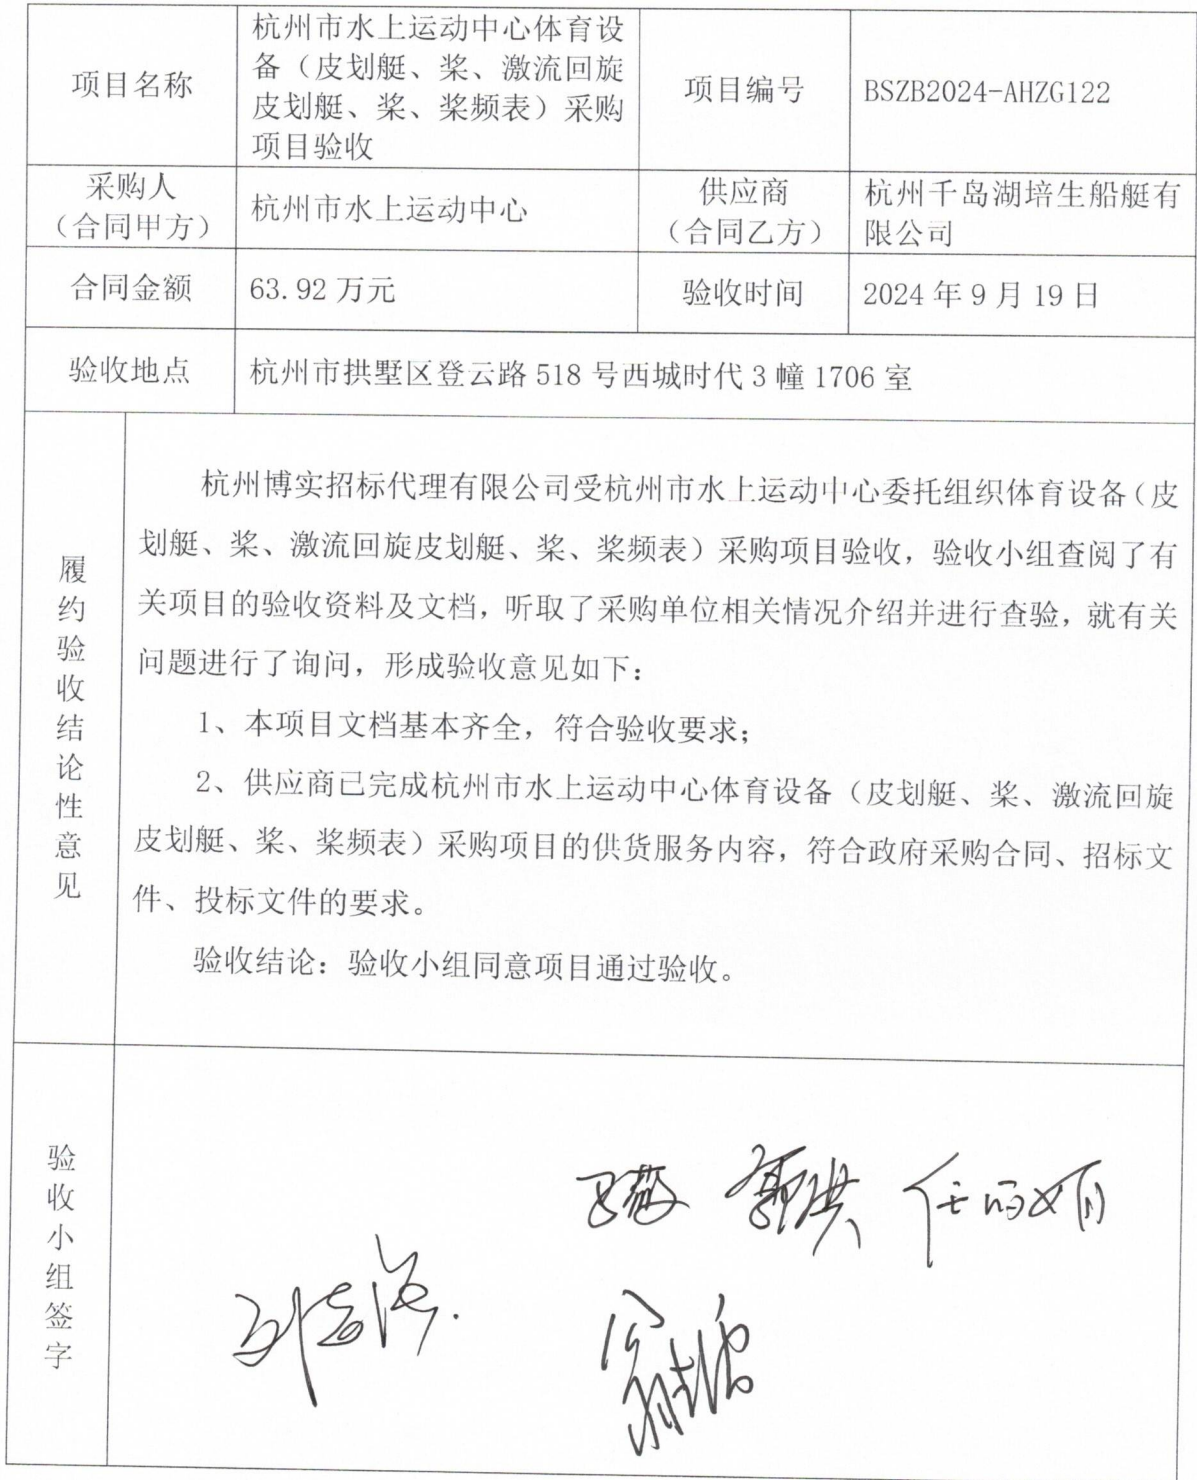 项目名称
杭州市水上运动中心体育设
备（皮划艇、桨、激流回旋
皮划艇、桨、桨频表）采购
项目验收
项目编号
BSZB2024-AHZG122
采购人
（合同甲方）
杭州市水上运动中心
供应商
（合同乙方）
杭州千岛湖培生船艇有
限公司
合同金额
63.92 万元
验收时间
2024 年 9 月 19 日
验收地点
杭州市拱墅区登云路 518 号西城时代 3 幢 1706 室
履约验收结论性意见
杭州博实招标代理有限公司受杭州市水上运动中心委托组织体育设备（皮
划艇、桨、激流回旋皮划艇、桨、桨频表）采购项目验收，验收小组查阅了有
关项目的验收资料及文档，听取了采购单位相关情况介绍并进行查验，就有关
问题进行了询问，形成验收意见如下：
1、本项目文档基本齐全，符合验收要求；
2、供应商已完成杭州市水上运动中心体育设备（皮划艇、桨、激流回旋
皮划艇、桨、桨频表）采购项目的供货服务内容，符合政府采购合同、招标文
件、投标文件的要求。
验收结论：验收小组同意项目通过验收。
验收小组签字